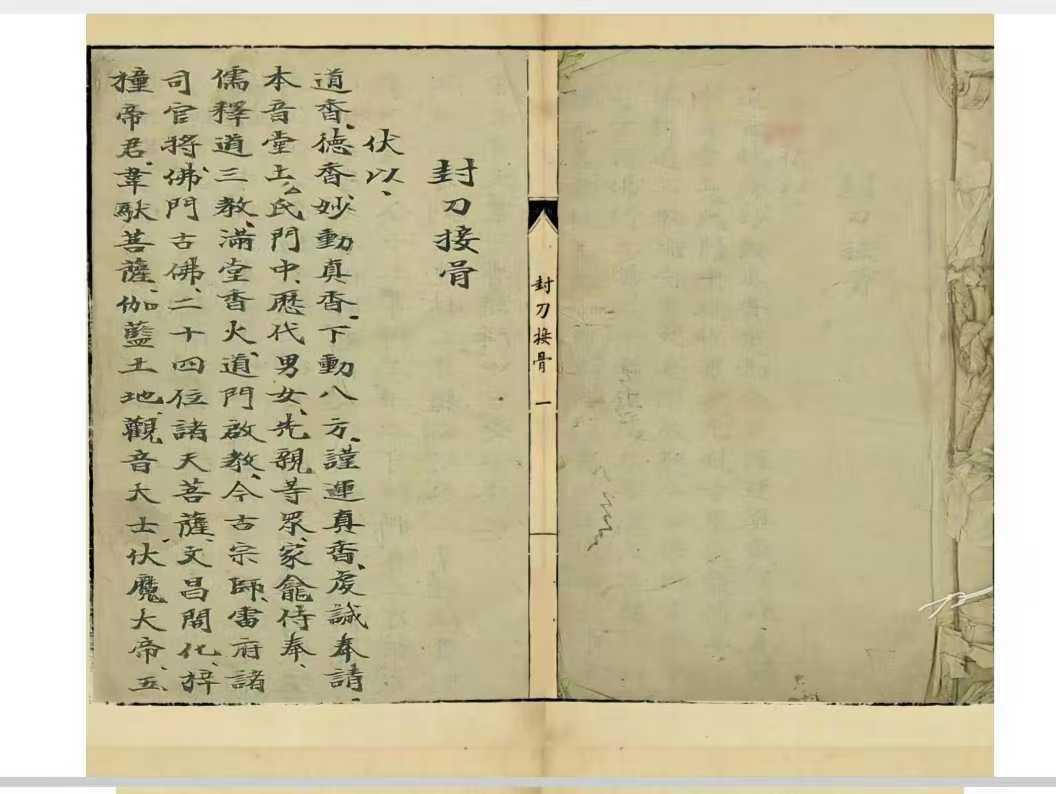 封刀接骨
伏以、
道香、德香、妙動真香、下動八方、謹運真香、虔誠奉請、
本音堂上△氏門中、歷代男女、先親等眾、家龕侍奉、
儒釋道三教、滿堂香火、道門啟教、今古宗師、雷府諸
司官將、佛門古佛、二十四位諸天菩薩、文昌開化、梓
撞帝君、韋馱菩薩、伽藍土地、觀音大士、伏魔大帝、五
封刀接骨 一